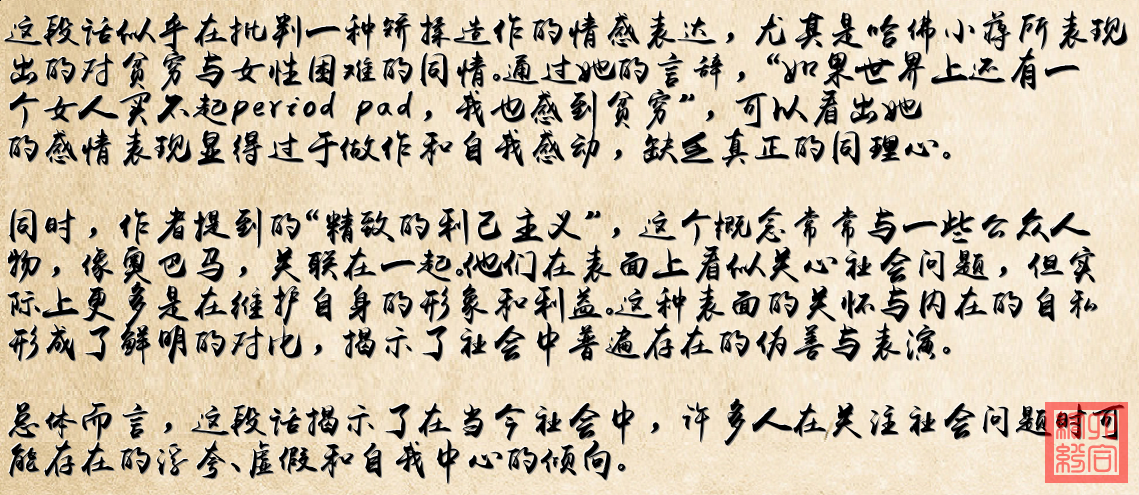 这段话似乎在批判一种矫揉造作的情感表达，尤其是哈佛小蒋所表现
出的对贫穷与女性困难的同情。通过她的言辞，“如果世界上还有一
个女人买不起period pad，我也感到贫穷”，可以看出她
的感情表现显得过于做作和自我感动，缺乏真正的同理心。
同时，作者提到的“精致的利己主义”，这个概念常常与一些公众人
物，像奥巴马，关联在一起。他们在表面上看似关心社会问题，但实
际上更多是在维护自身的形象和利益。这种表面的关怀与内在的自私
形成了鲜明的对比，揭示了社会中普遍存在的伪善与表演。
总体而言，这段话揭示了在当今社会中，许多人在关注社会问题时可
能存在的浮夸、虚假和自我中心的倾向。